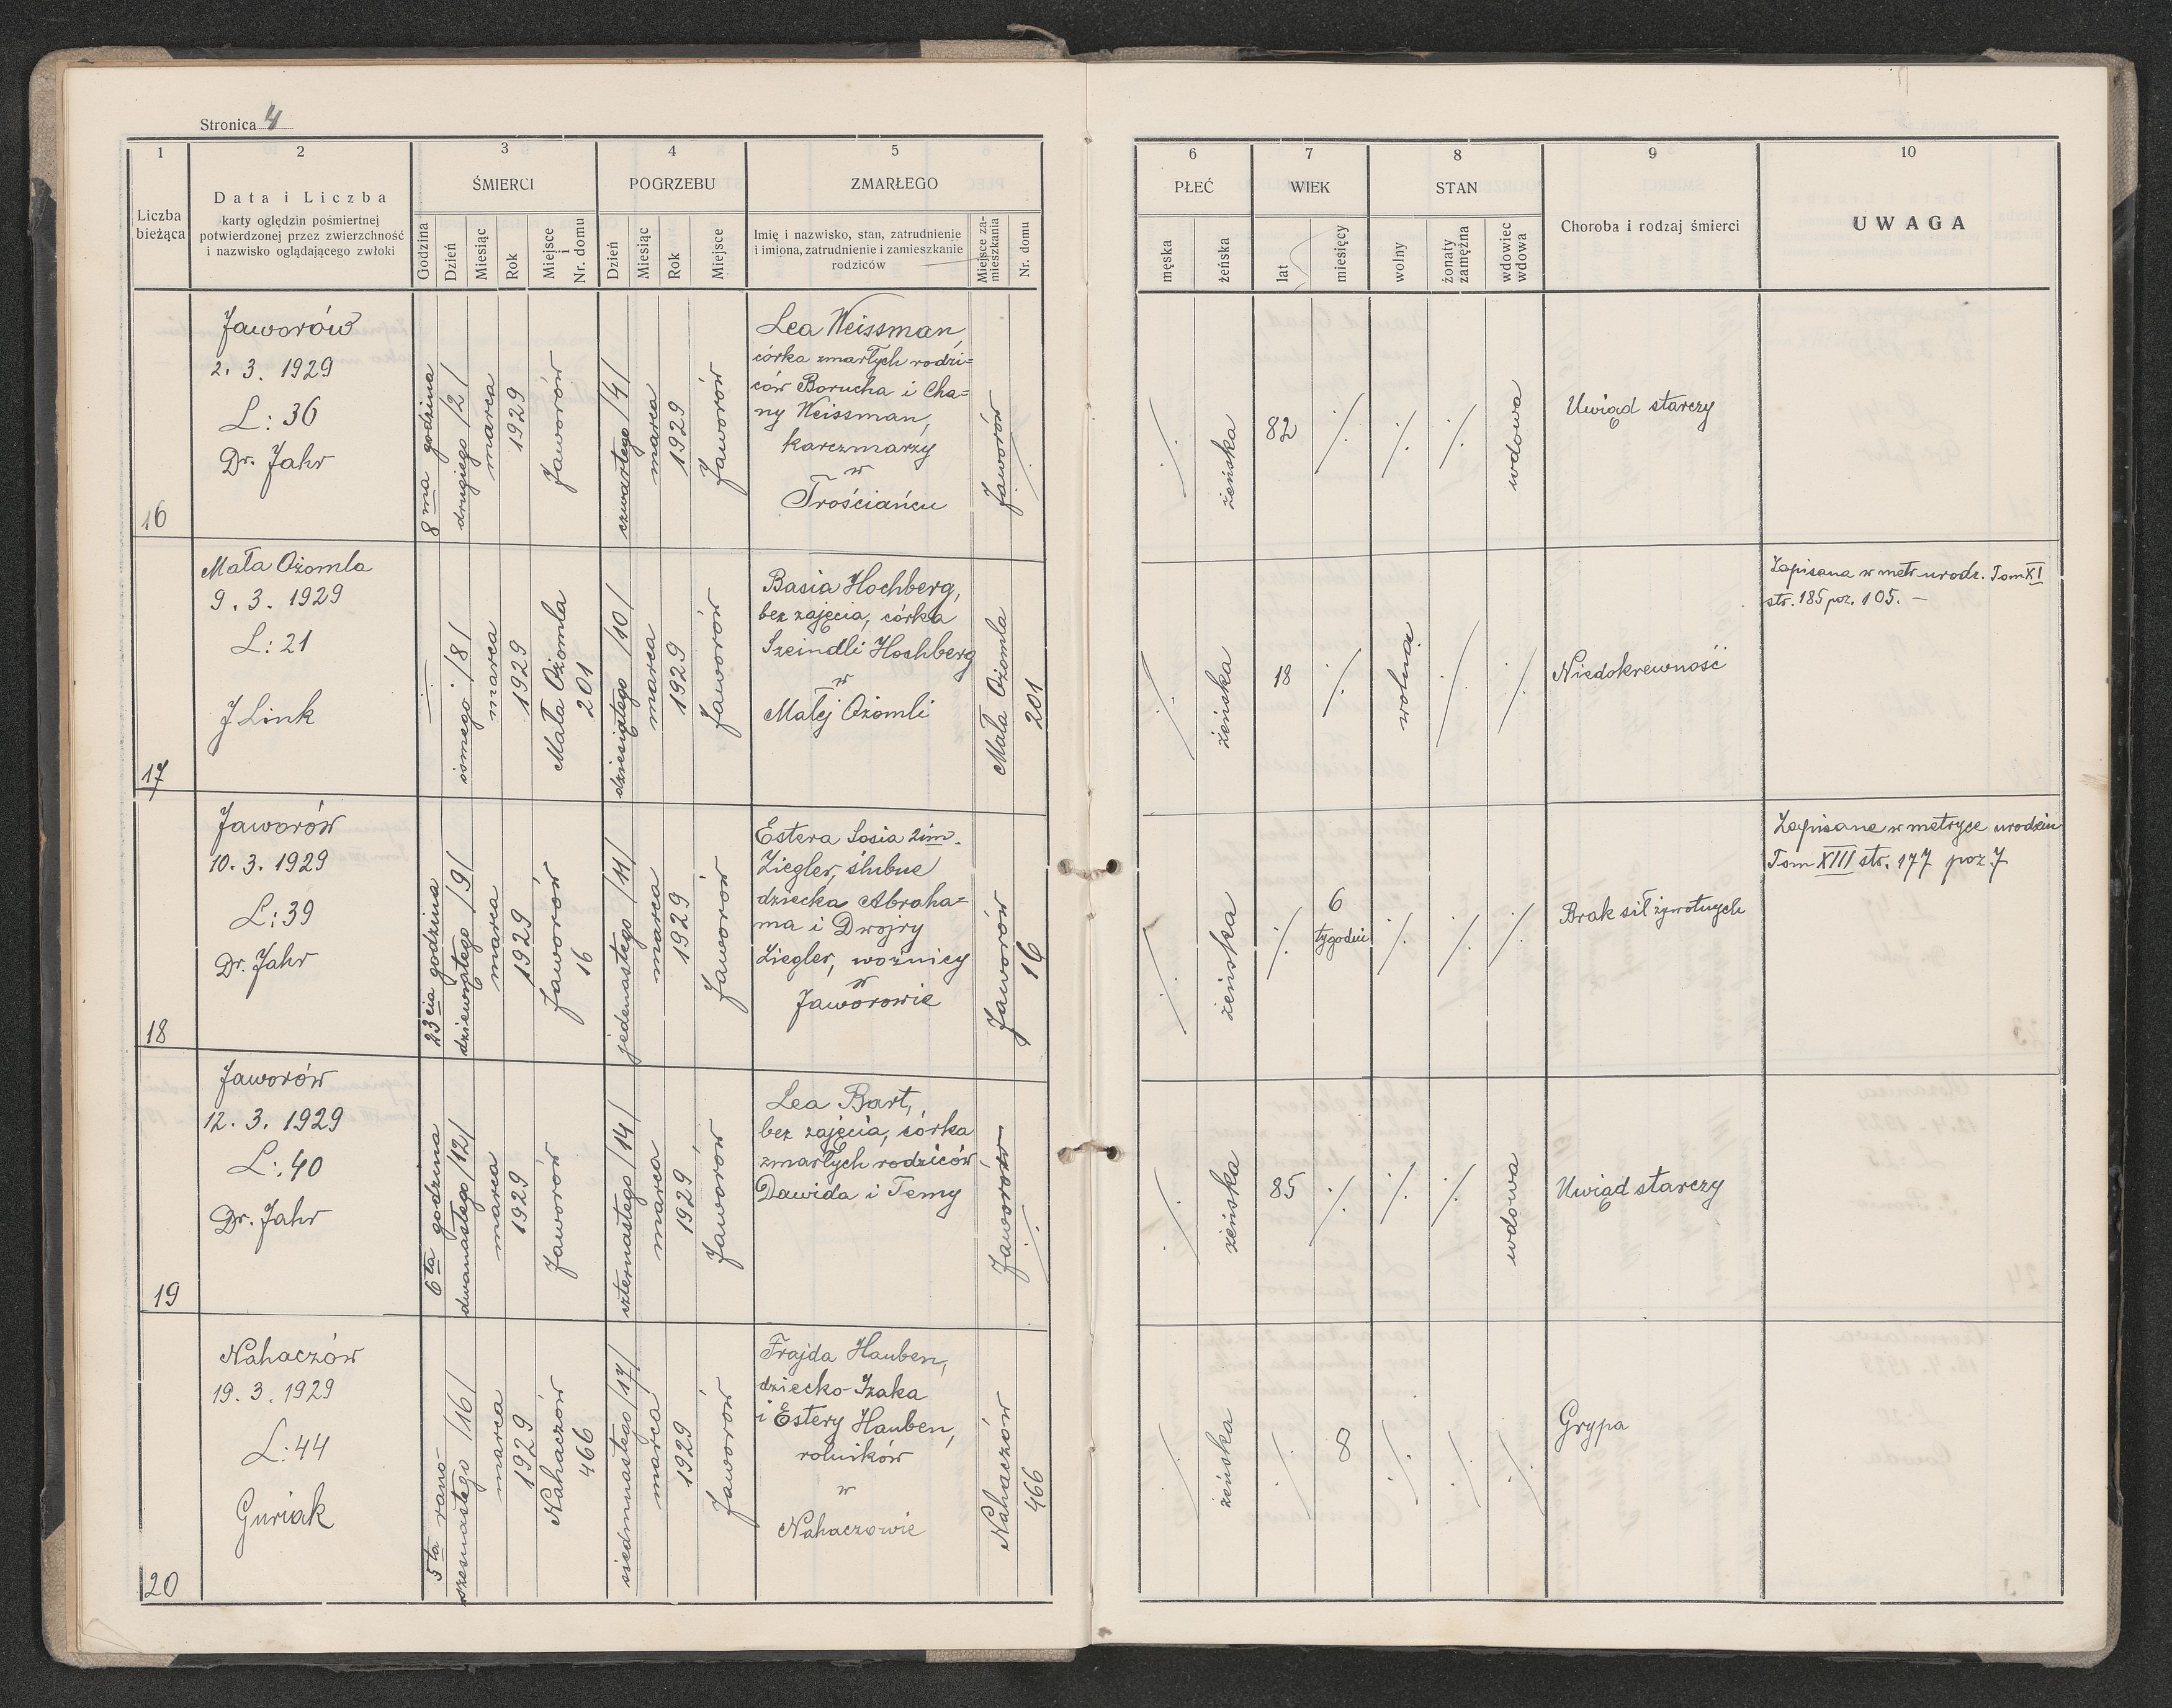 Stronica 4
1
2
3
4
5
Liczba
bieżąca
Data i Liczba
karty oględzin pośmiertnej
potwierdzonej przez zwierzchność
i nazwisko oglądającego zwłoki
ŚMIERCI
Godzina
Dzień
Miesiąc
Rok
Miejsce
i
Nr. domu
POGRZEBU
Dzień
Miesiąc
Rok
Miejsce
ZMARŁEGO
Imię i nazwisko, stan, zatrudnienie
i imiona, zatrudnienie i zamieszkanie
rodziców
Miejsce za-
mieszkania
Nr. domu
6
7
8
9
10
PŁEĆ
męska
żeńska
WIEK
lat
miesięcy
STAN
wolny
żonaty
zamężna
wdowiec
wdowa
Choroba i rodzaj śmierci
UWAGA
16
Jaworów
2. 3. 1929
L: 36
Dr. Jahr
8ma godzina
drugiego /2/
marca
1929
Jaworów
czwartego /4/
marca
1929
Jaworów
Lea Weissman,
córka zmarłych rodzi=
ców Borucha i Cha=
ny Weissman,
karczmarzy
w
Trościańcu
Jaworów
⁒
⁒
żeńska
82
⁒
⁒
⁒
wdowa
Uwiąd starczy
17
Mała Ożomla
9. 3. 1929
L: 21
J Link
ósmego /8/
marca
1929
Mała Ożomla
201
dziesiątego /10/
marca
1929
Jaworów
Basia Hochberg,
bez zajęcia, córka
Szeindli Hochberg
w
Małej Ożomli
Mała Ożomla
201
⁒
żeńska
18
⁒
wolna
⁒
⁒
Niedokrewność
Zapisana w metr. urodz. Tom XI
str. 185 poz. 105. —
18
Jaworów
10. 3. 1929
L: 39
Dr. Jahr
23cia godzina
dziewiątego /9/
marca
1929
Jaworów
16
jedenastego /11/
marca
1929
Jaworów
Estera Sosia 2im.
Ziegler, ślubne
dziecka Abraha=
ma i Dwojry
Ziegler, woźnicy
w
Jaworowie
Jaworów
16
⁒
żeńska
⁒
6
tygodni
⁒
⁒
⁒
Brak sił żywotnych
Zapisane w metryce urodzin
Tom XIII str. 177 poz 7
19
Jaworów
12. 3. 1929
L: 40
Dr. Jahr
6ta godzina
dwunastego /12/
marca
1929
Jaworów
czternastego /14/
marca
1929
Jaworów
Lea Bart,
bez zajęcia, córka
zmarłych rodziców
Dawida i Temy
Jaworów
⁒
⁒
żeńska
85
⁒
⁒
⁒
wdowa
Uwiąd starczy
20
Nahaczów
19. 3. 1929
L: 44
Guriak
5ta rano
szesnastego /16/
marca
1929
Nahaczów
466
siedmnastego /17/
marca
1929
Jaworów
Frajda Hauben,
dziecko Izaka
i Estery Hauben,
rolników
w
Nahaczowie
Nahaczów
466
⁒
żeńska
⁒
8
⁒
⁒
⁒
Grypa